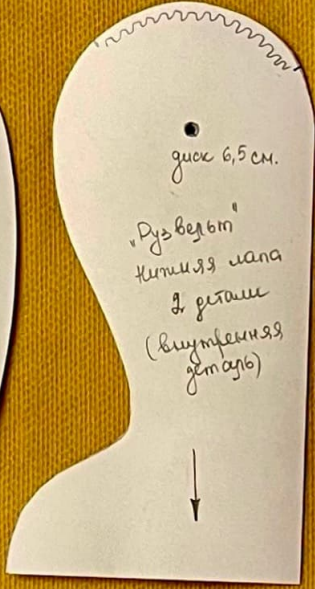 диск 6,5 см.
"Рузвельт"
Нижняя лапа
2 детали
(внутренняя
деталь)